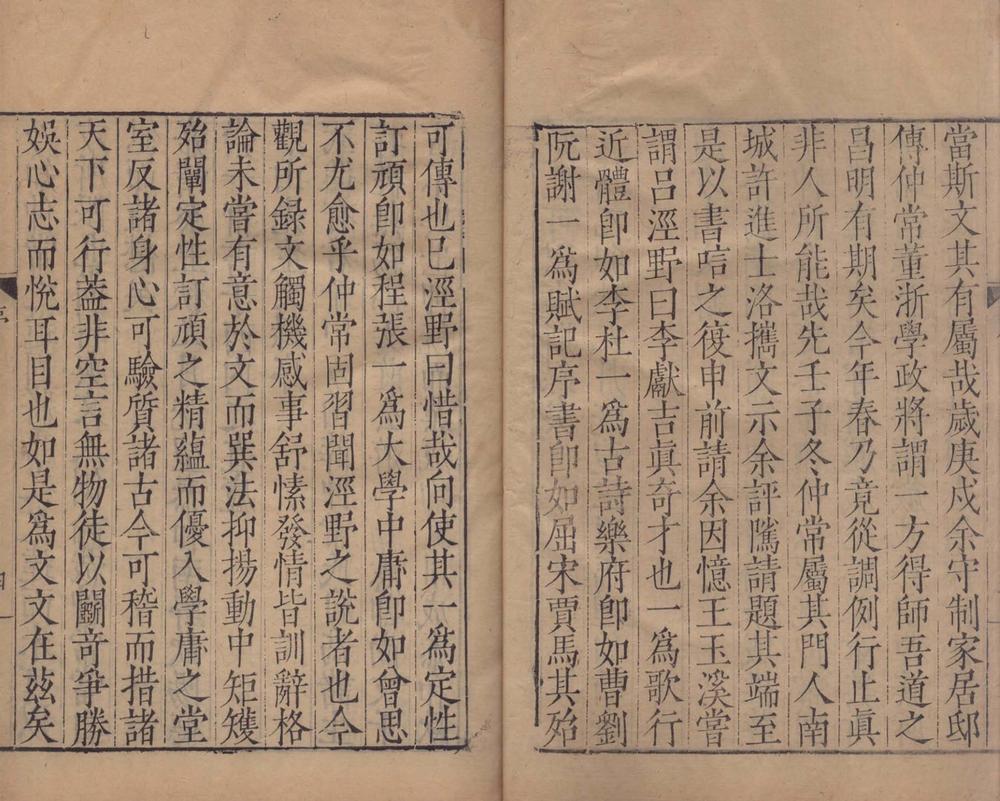 當斯文其有屬哉歲庚戍余守制家居邸
傳仲常董浙學政將謂一方得師吾道之
昌明有期矣今年春乃竟從調例行止眞
非人所能哉先壬子冬仲常屬其門人南
城許進士洛攜文示余評隲請題其端至
是以書唁之復申前請余因憶王玉溪嘗
謂呂涇野曰李獻吉眞奇才也一爲歌行
近體卽如李杜一爲古詩樂府卽如曹劉
阮謝一爲賦記序書卽如屈宋賈馬其殆
可傳也已涇野曰惜哉向使其一爲定性
訂頑卽如程張一爲大學中庸卽如曾思
不尤愈乎仲常固習聞涇野之說者也今
觀所録文觸機感事舒愫發情皆訓辭格
論未嘗有意於文而巽法抑揚動中矩矱
殆闡定性訂頑之精蘊而優入學庸之堂
室反諸身心可驗質諸古今可稽而措諸
天下可行葢非空言無物徒以鬭奇爭勝
娛心志而恱耳目也如是爲文文在茲矣